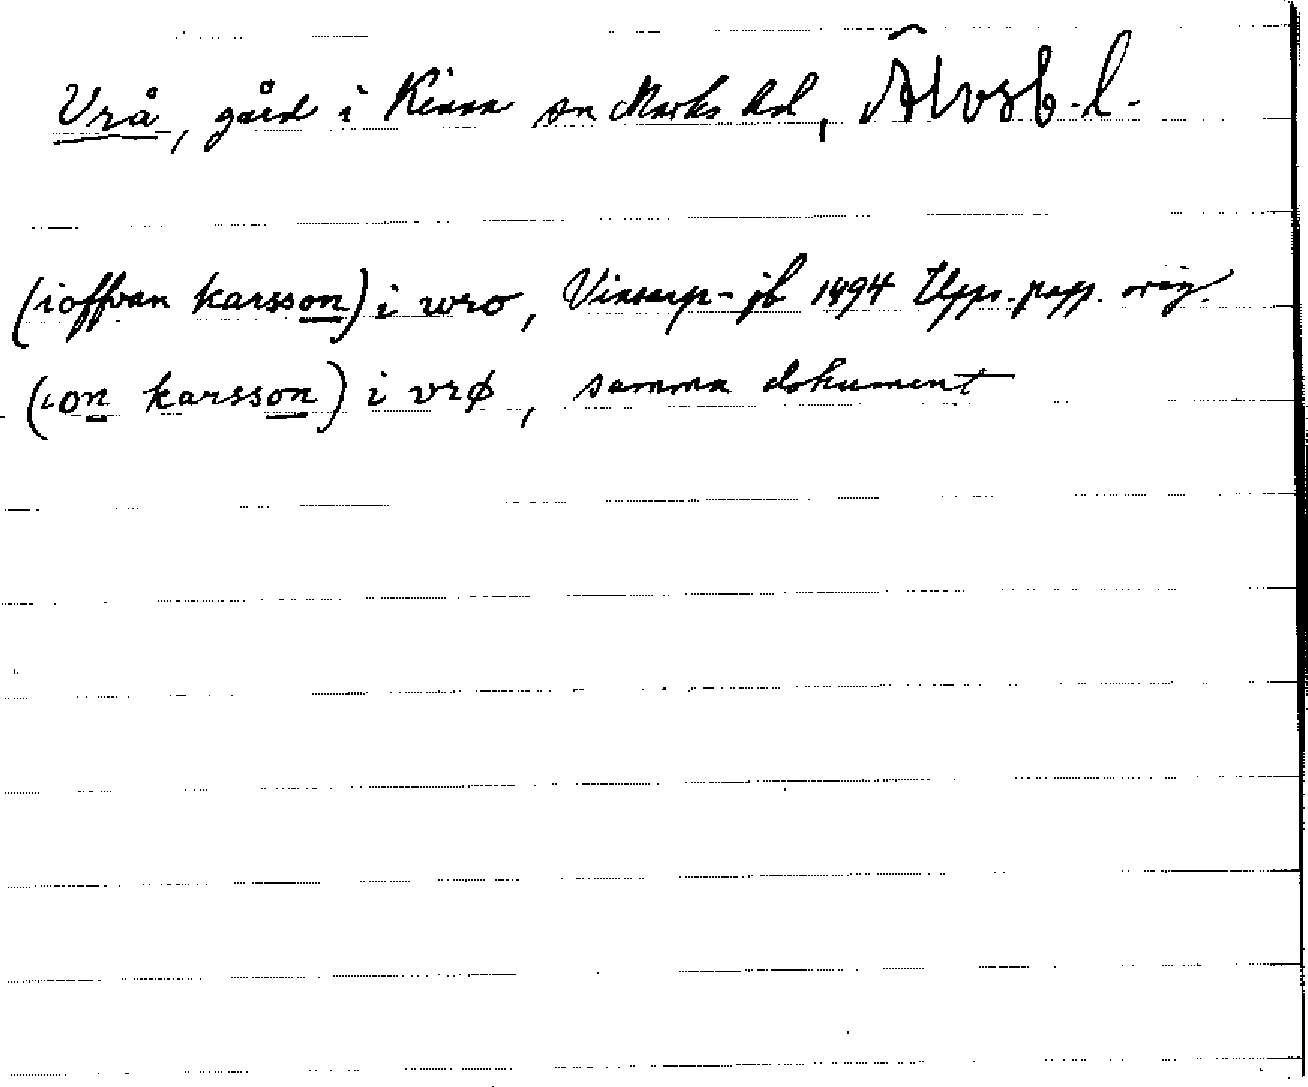 Vrå, gård i Kinna sn Marks hd, Älvsb. l.
(ioffvan karsson) i wro, Vinsarp-jb 1494 Upps. papp. orig.
(ion karsson) i vrø, samma dokument